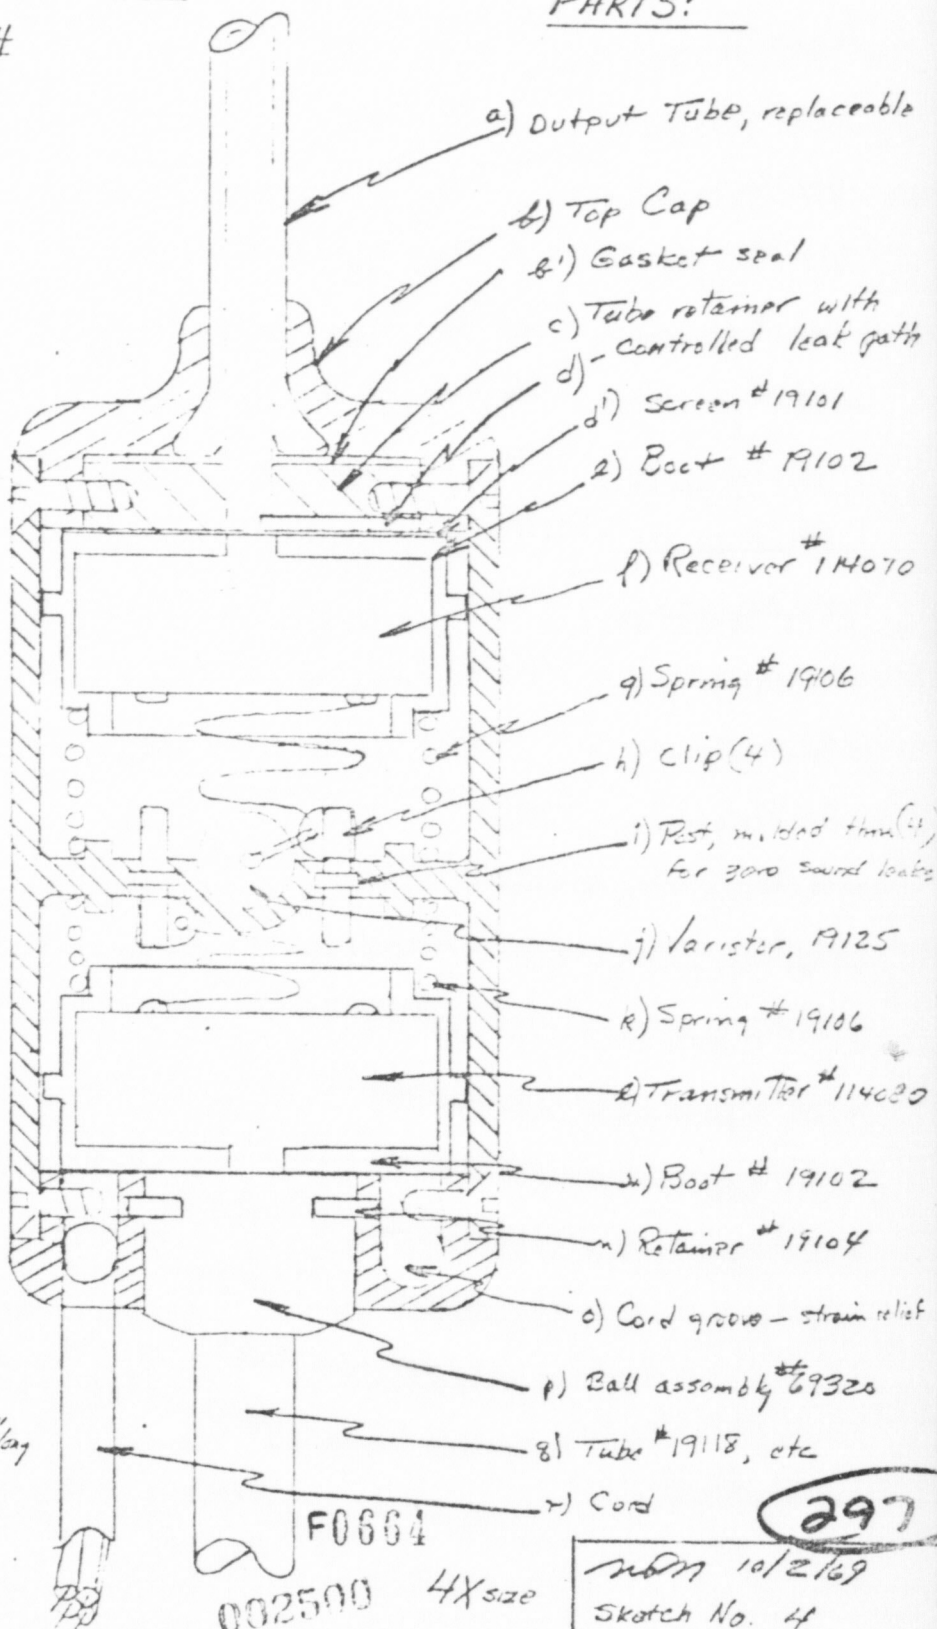 PARTS:
#
a) Output Tube, replaceable
b) Top Cap
b') Gasket seal
c) Tube retainer with
d) - controlled leak path
d') Screen #19101
e) Boot # 19102
f) Receiver #114070
g) Spring # 19106
h) Clip (4)
i) Post, molded thru (4)
for zero sound leaks
j) Varistor, 19125
k) Spring # 19106
l) Transmitter #114080
m) Boot # 19102
n) Retainer # 19104
o) Cord groove - strain relief
p) Ball assembly #69320
q) Tube #19118, etc
long
r) Cord
297
F0664
10/2/69
002500
4X size
Sketch No. 4